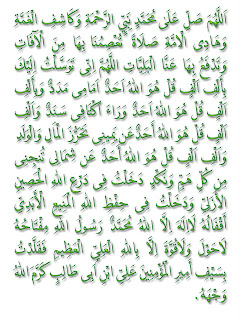 اَللّٰهُمَّ صَلِّ عَلَى مُحَمَّدٍ نَبِيِّ الرَّحْمَةِ وَكَاشِفِ الْغُمَّةِ
وَهَادِي الْاُمَّةِ صَلَاةً تَعْصِمُنَا بِهَا مِنَ الْاٰفَاتِ
وَتَدْفَعُ بِهَا عَنَّا الْبَلِيَّاتِ اَللّٰهُمَّ اِنِّي تَوَسَّلْتُ اِلَيْكَ
بِاَلْفِ اَلْفِ قُلْ هُوَ اللهُ اَحَدٌ اَمَامِي مَدَدٌ وَبِاَلْفِ
اَلْفِ قُلْ هُوَ اللهُ اَحَدٌ وَرَاءَ اَكْتَافِي سَنَدٌ وَاَلْفِ
اَلْفِ قُلْ هُوَ اللهُ اَحَدٌ عَنْ يَمِينِي تَحْرُزُ الْمَالَ وَالْوَلَدِ
وَاَلْفِ اَلْفِ قُلْ هُوَ اللهُ اَحَدٌ عَنْ شِمَالِي تُنْجِينِي
مِنْ كُلِّ هَمٍّ وَنَكَدٍ دَخَلْتُ فِي دِرْعِ اللهِ الْحَصِينِ
الْاَزَلِيِّ وَدَخَلْتُ فِي حِفْظِ اللهِ الْمَنِيعِ الْاَبَدِيِّ
اَقْفَالُهُ لَا اِلٰهَ اِلَّا اللهُ مُحَمَّدٌ رَسُولُ اللهِ مِفْتَاحُهُ
لَاحَوْلَ وَلَاقُوَّةَ اِلَّا بِاللهِ الْعَلِيِّ الْعَظِيمِ تَقَلَّدْتُ
بِسَيْفِ اَمِيرِ الْمُؤْمِنِينَ عَلِيِّ ابْنِ اَبِي طَالِبٍ كَرَّمَ اللهُ
وَجْهَهُ.